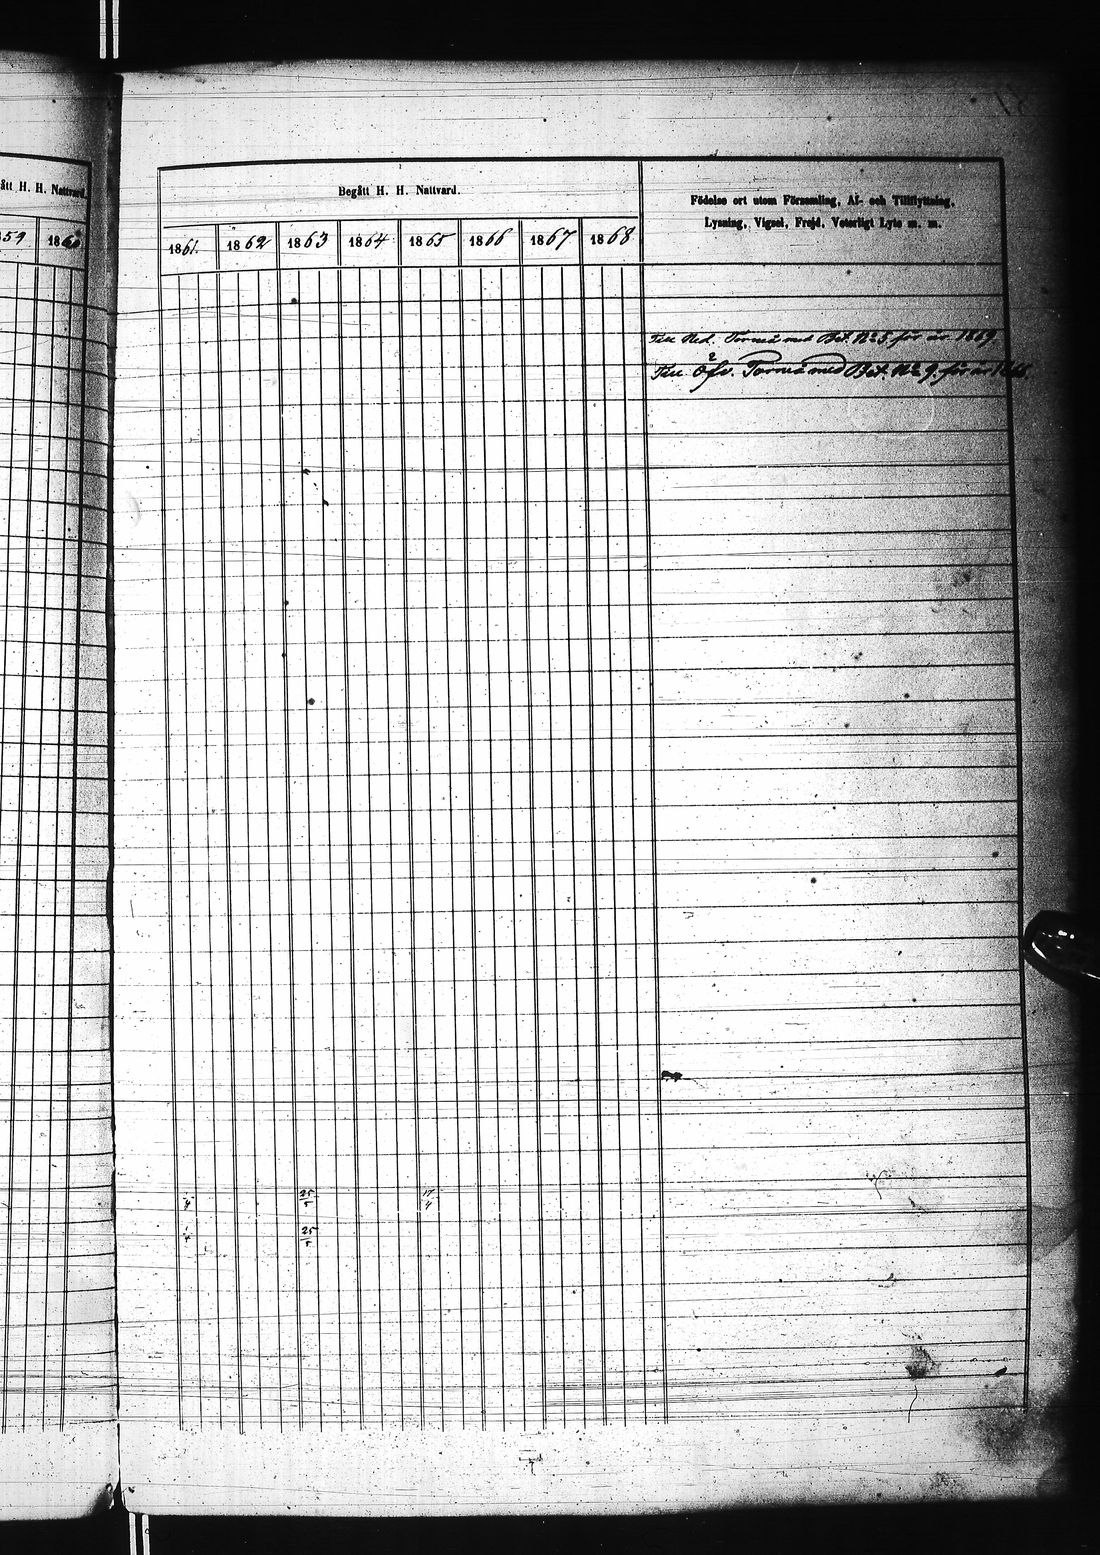 ått H. H. Nattvard.
859 1860
Begått H. H. Nattvard.
Födelse ort utom Församling, Af- och Tillflyttning,
Lysning, Vigsel, Frejd, Veterligt Lyte m. m.
1861. 1862 1863 1864 1865 1866 1867 1868
Till Ned. Torneå med Bet. No 5 för år 1869.
Till Öfv. Torneå med Bet. No 9. för år
25/5 17/4
25/5